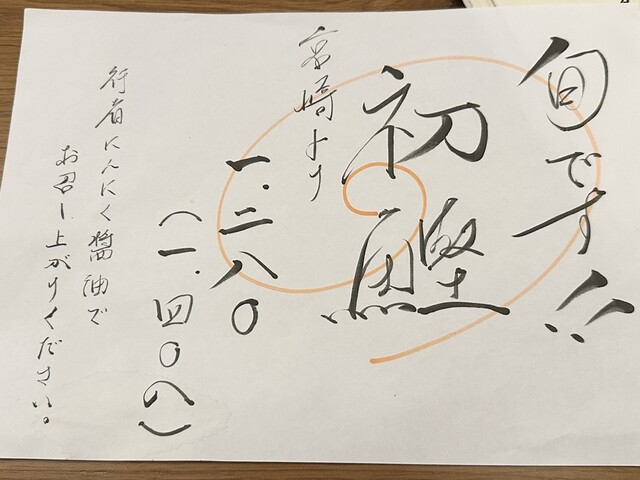 旬です!!
初鰹
宮崎より
一.二八〇
(一.四〇八)
行者にんにく醤油で
お召し上がりください。